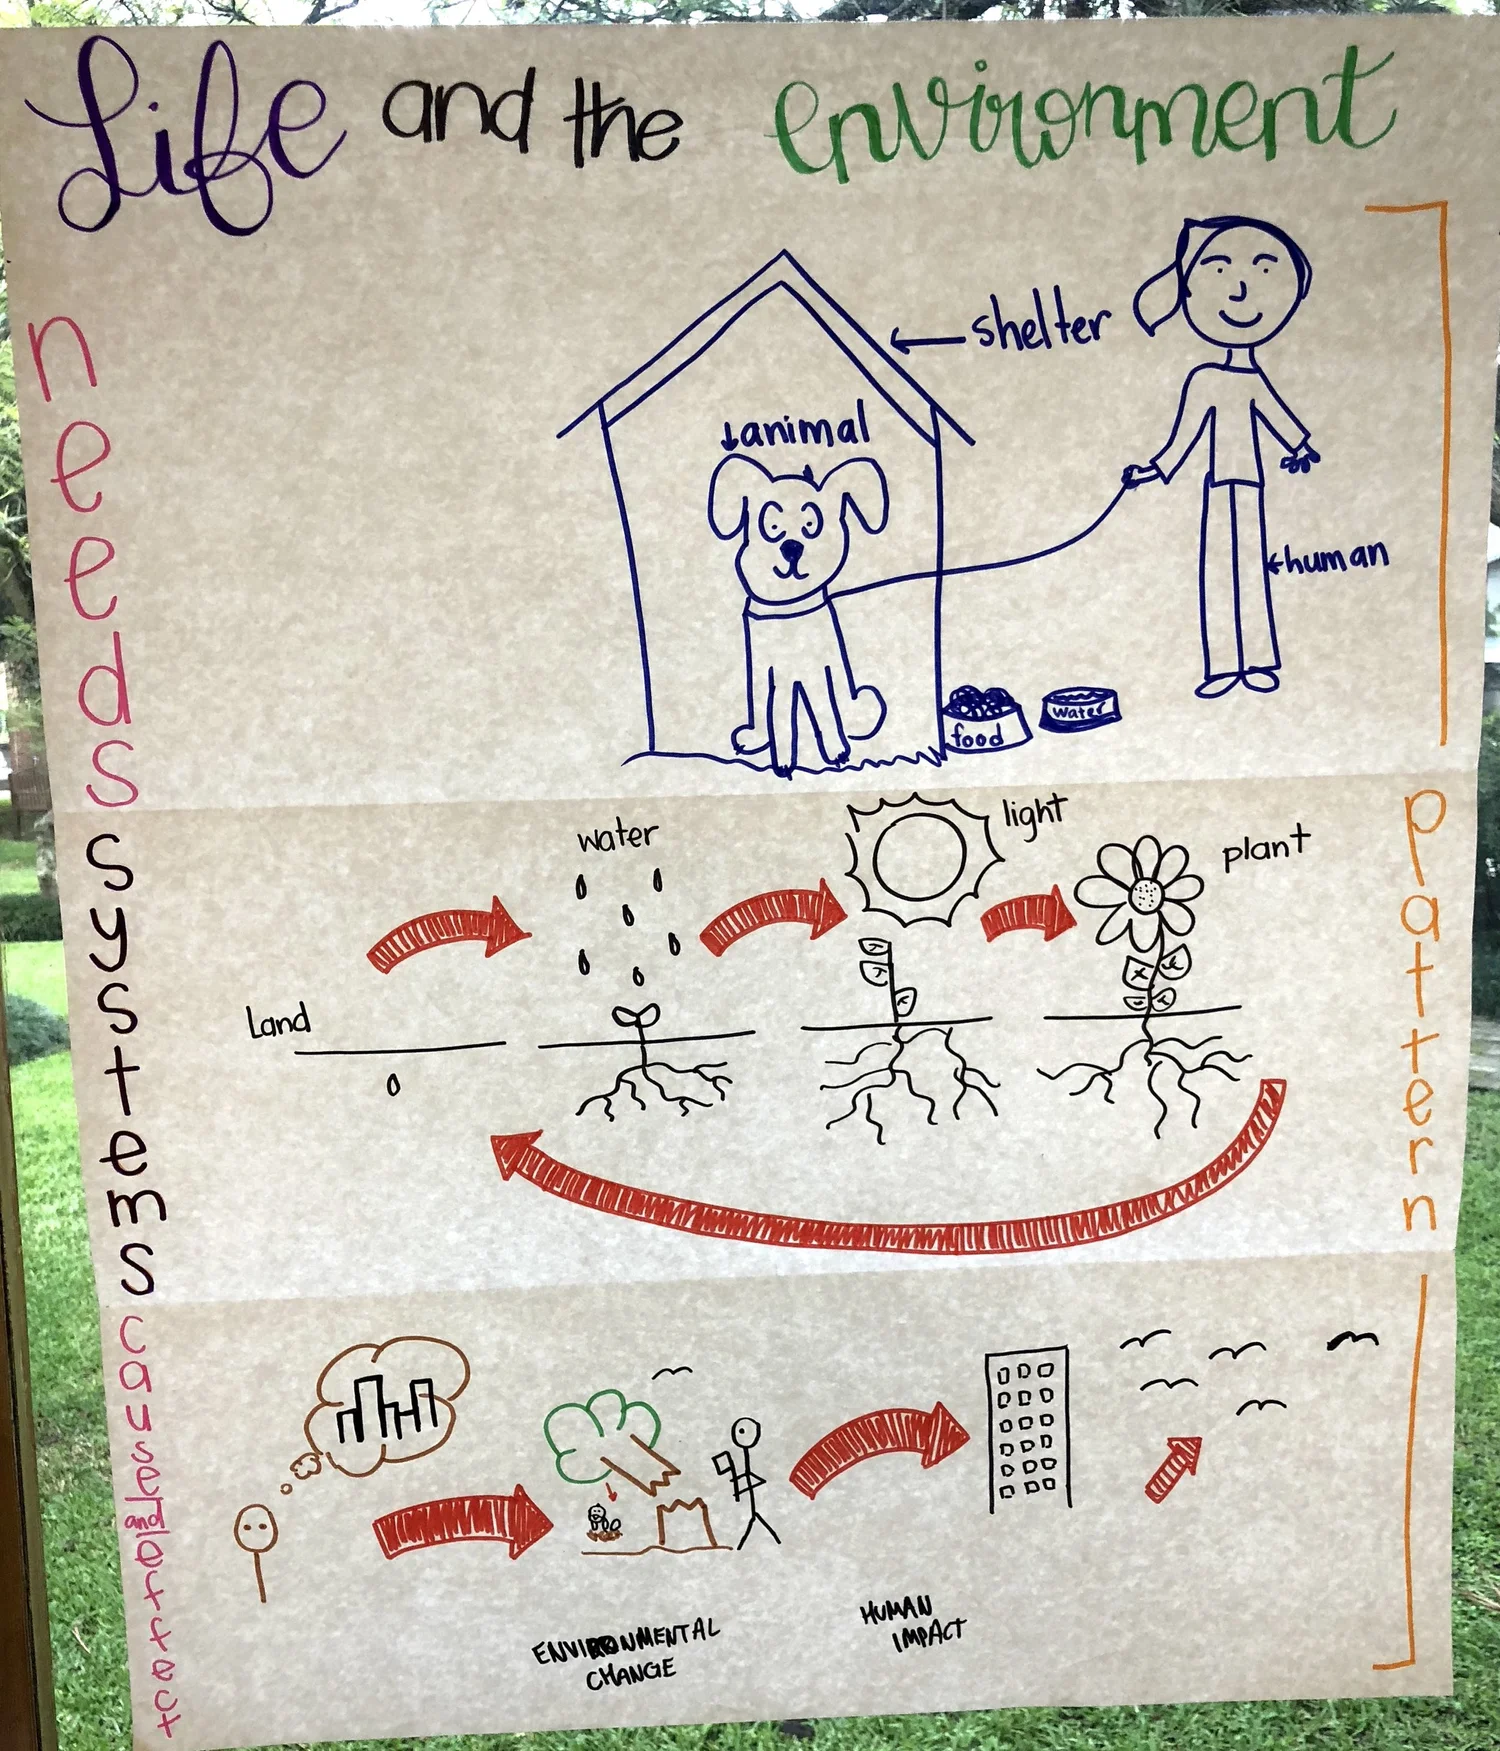 Life and the environment
needs
shelter
animal
human
food
water
systems
water
light
plant
Land
pattern
cause and effect
ENVIRONMENTAL
CHANGE
HUMAN
IMPACT